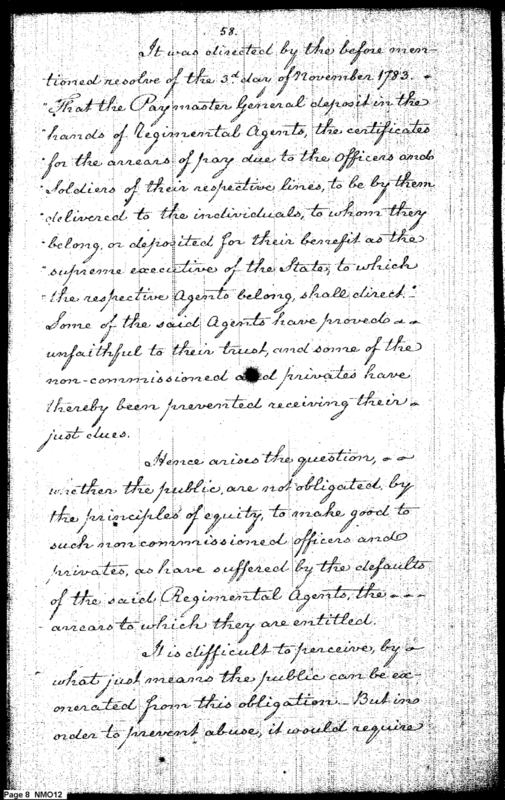 58.
It was directed by the before men-
tioned resolve of the 3.d day of November 1783. -
"That the Paymaster General deposit in the
"hands of Regimental Agents, the certificates
"for the arrears of pay due to the Officers and
"Soldiers of their respective lines, to be by them
"delivered to the individuals, to whom they
"belong, or deposited for their benefit as the
"supreme executive of the State, to which
"the respective Agents belong, shall direct."
Some of the said Agents have proved - -
unfaithful to their trust, and some of the
non-commissioned and privates have
thereby been prevented receiving their -
just dues.
Hence arises the question, - -
whether the public, are not obligated, by
the principles of equity, to make good to
such non commissioned officers and
privates, as have suffered by the defaults
of the said Regimental Agents, the - - -
arrears to which they are entitled.
It is difficult to perceive, by -
what just means the public can be ex-
onerated from this obligation - But in
order to prevent abuse, it would require
Page 8 NMO12